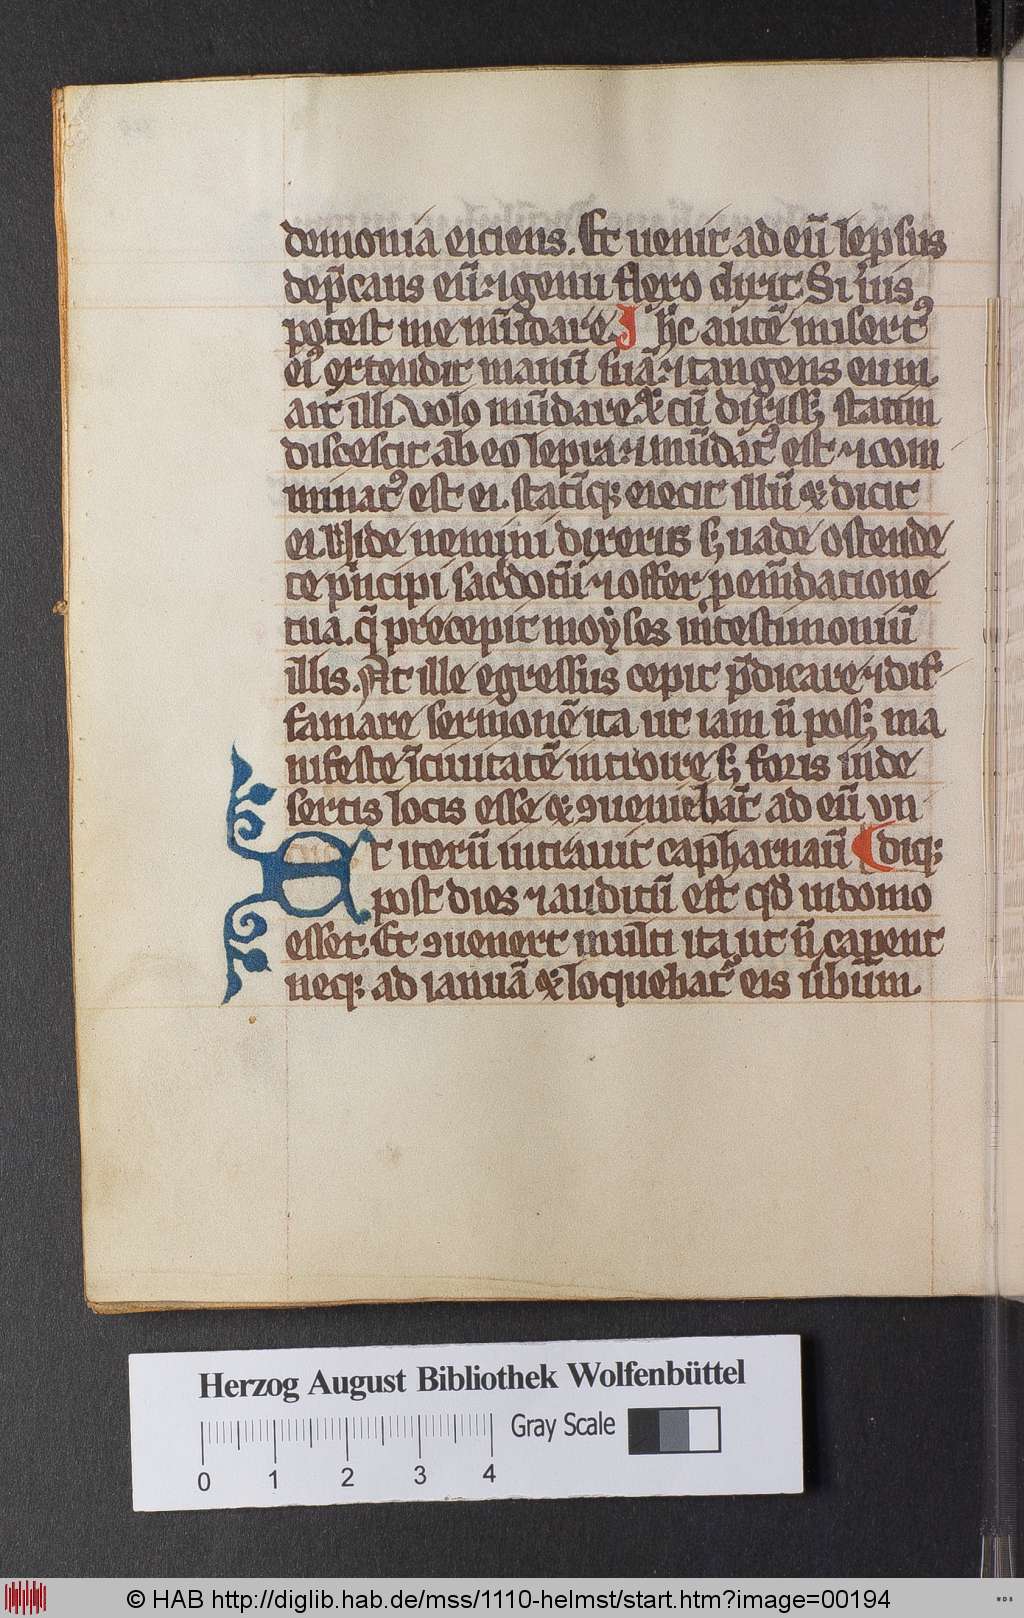 demonia eiciens. Et uenit ad eū leprſus
dep̄cans eū ⁊ igenu flexo dixit Si uis
poteſt me mūdare. Jh̄c autē miſertꝰ
eiꝰ extendit manū ſuā ⁊ tangens eum
ait illi volo mūdare ⁊ cū dixiſſꝫ ſtatim
diſceſcit ab eo lepra ⁊ mūdatꝰ eſt ⁊ com
minatꝰ eſt ei. ſtatīqꝫ eiecit illū ⁊ dicit
ei. Vide nemini dixeris ſꝫ uade oſtende
te pⁱncipi ſac̓dotū ⁊ offer p̱ emūdatione
tua. q̄ precepit moẏſes in teſtimoniū
illis. At ille egreſſus cepit p̄dicare ⁊ dif
famare ſermonē ita ut iam n̄ poſſꝫ ma
nifeſte ī ciuitatē introire ſꝫ foris in de
ſertis locis eſſe ⁊ ꝯueniebāt ad eū vn
Et iterū intrauit capharnaū dīqꝫ
poſt dies ⁊ auditū eſt qd̄ in domo
eſſet. Et ꝯuenert multi ita ut n̄ caꝑent
neqꝫ ad ianuā ⁊ loquebat᷑ eis ūbum.
Herzog August Bibliothek Wolfenbüttel
Gray Scale
0 1 2 3 4
© HAB http://diglib.hab.de/mss/1110-helmst/start.htm?image=00194